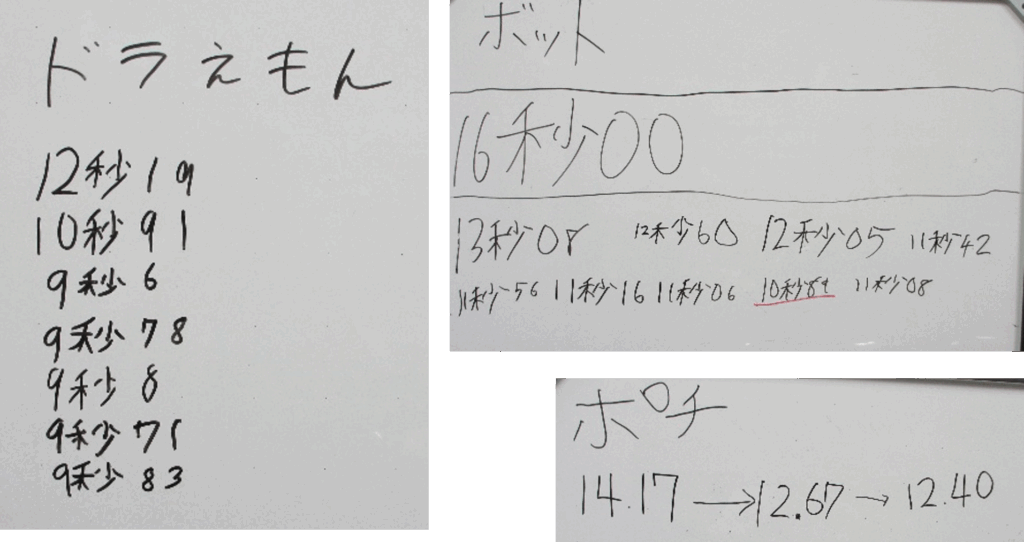 ドラえもん
12秒19
10秒91
9秒6
9秒78
9秒8
9秒71
9秒83
ボット
16秒00
13秒08 12秒60 12秒05 11秒42
11秒56 11秒16 11秒06 10秒89 11秒08
ポチ
14.17→12.67→12.40